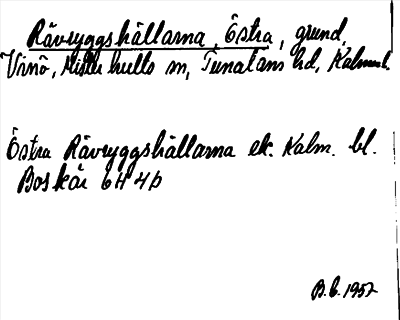 Rävryggshällarna, Östra, grund,
Vinö, Misterhults sn, Tunaläns hd, Kalm. l.
Östra Rävryggshällarna ek. Kalm. bl.
Boskär 6H 4b
B.b. 1952